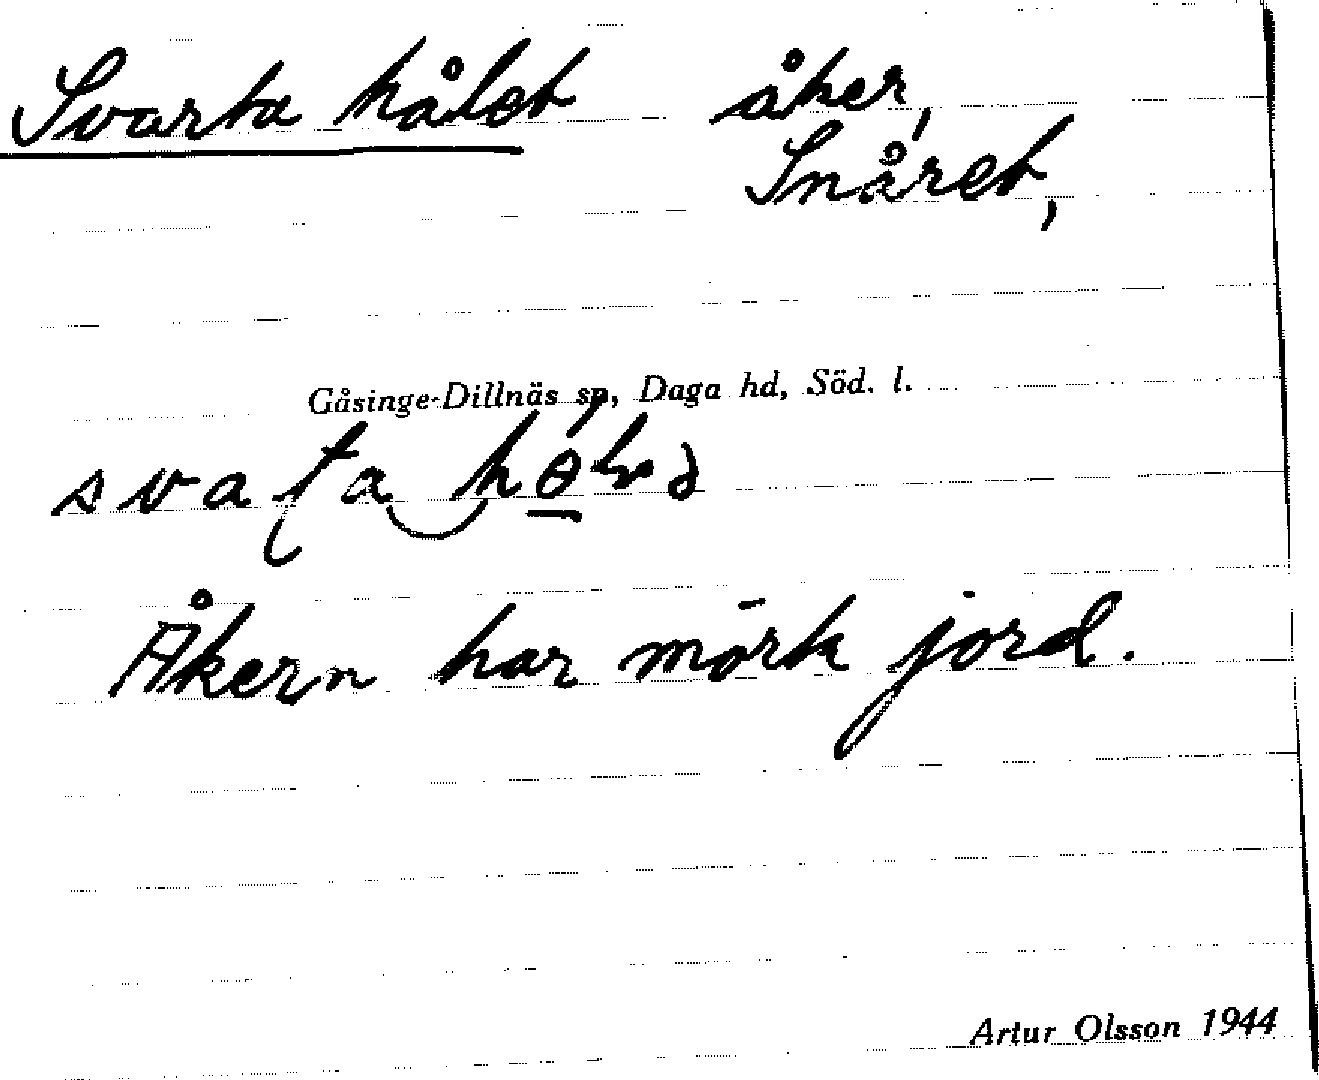 Svarta hålet åker,
Snåret,
Gåsinge-Dillnäs sp, Daga hd, Söd. l.
Åkern har mörk jord.
Artur Olsson 1944